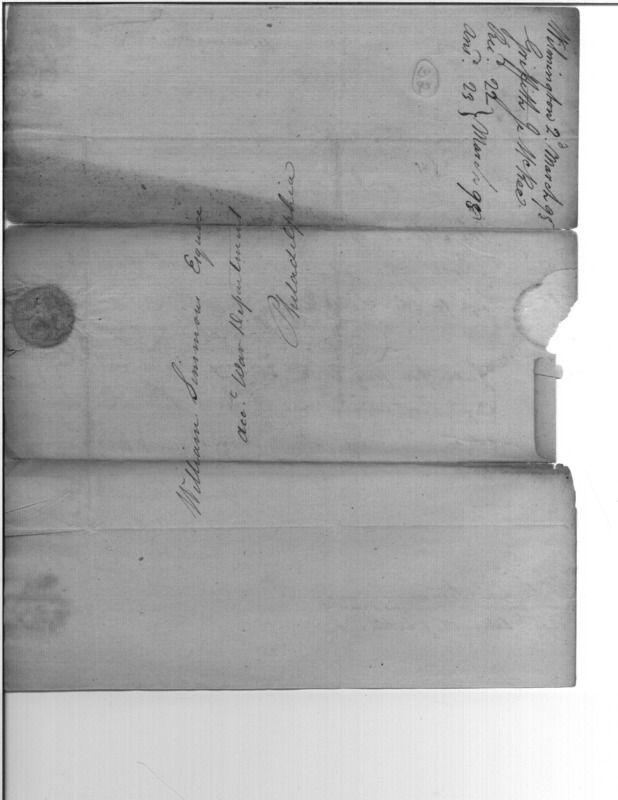 Wilmington 2d March 95
Griffith J McRee
Rec. 22 } March 95
Ans. 23
William Simmons Esquire
Acct War Department
Philadelphia